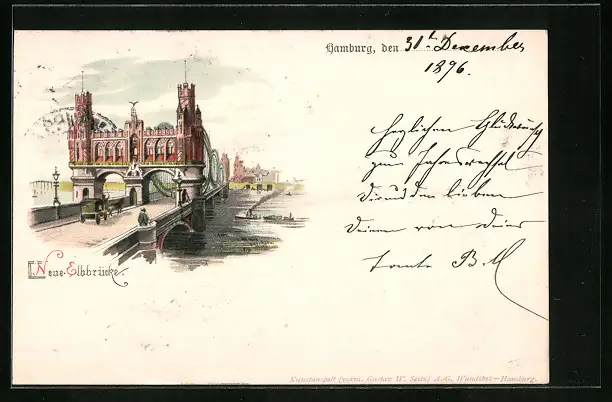 Hamburg, den 31t. December
1896.
Herzlichen Glückwunsch
zum Jahreswechsel
Dir und den lieben
Deinen von Deiner
Tante B. M
Neue Elbbrücke.
Kunstanstalt (vorm. Gustav W. Seitz) A.G. Wandsbek—Hamburg.